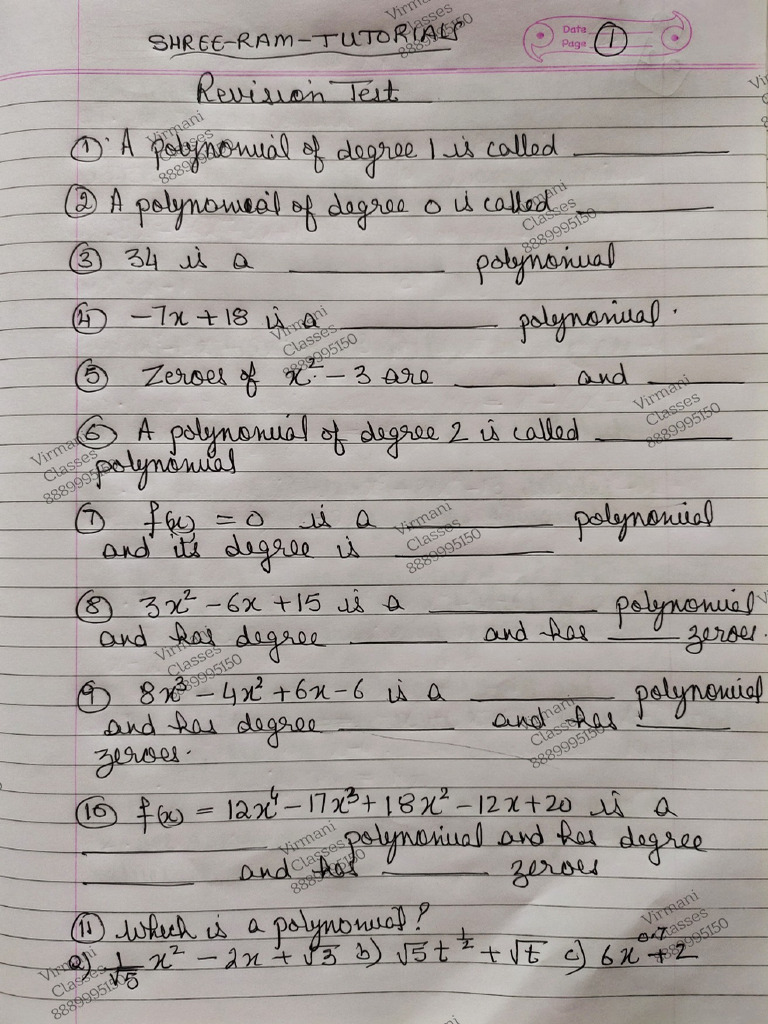 SHREE-RAM-TUTORIALS
Date
Page 1
Revision Test
① A polynomial of degree 1 is called ________
② A polynomial of degree 0 is called ________
③ 34 is a ________ polynomial
④ -7x + 18 is a ________ polynomial.
⑤ Zeroes of x² - 3 are ________ and ________
⑥ A polynomial of degree 2 is called ________
polynomial
⑦ f(x) = 0 is a ________ polynomial
and its degree is ________
⑧ 3x² - 6x + 15 is a ________ polynomial
and has degree ________ and has ____ zeroes.
⑨ 8x³ - 4x² + 6x - 6 is a ________ polynomial
and has degree ________ and has ________
zeroes.
⑩ f(x) = 12x⁴ - 17x³ + 18x² - 12x + 20 is a
________ polynomial and has degree
________ and has ________ zeroes
⑪ Which is a polynomial?
a) 1/√5 x² - 2x + √3 b) √5 t^(1/2) + √t c) 6x^0.7 + 2
Virmani
Classes
8889995150